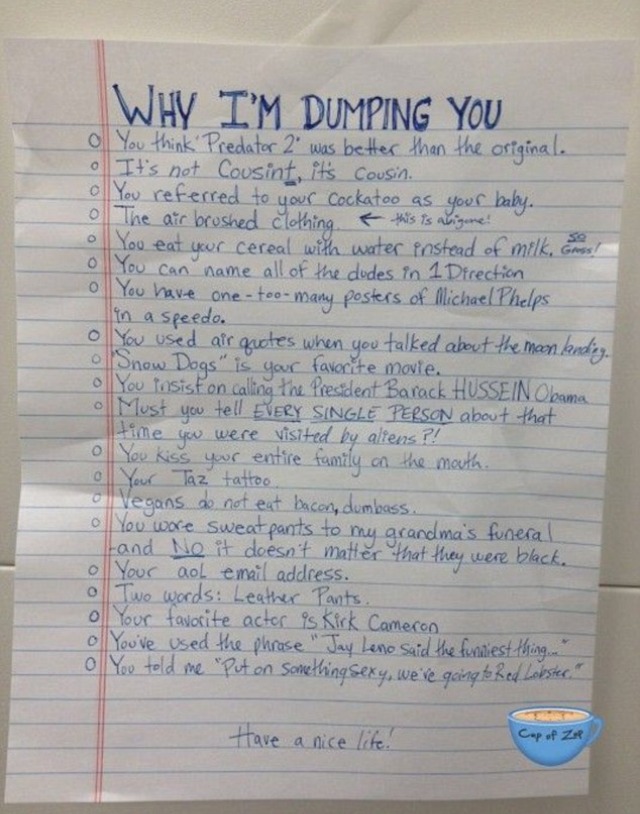 WHY I'M DUMPING YOU
You think "Predator 2" was better than the original.
It's not Cousint, it's cousin.
You referred to your cockatoo as your baby.
The air brushed clothing. ← this is a bigone!
You eat your cereal with water instead of milk. SO Gross!
You can name all of the dudes in 1 Direction
You have one-too-many posters of Michael Phelps
in a speedo.
You used air quotes when you talked about the moon landing.
"Snow Dogs" is your favorite movie.
You insist on calling the President Barack HUSSEIN Obama
Must you tell EVERY SINGLE PERSON about that
time you were visited by aliens?!
You kiss your entire family on the mouth.
Your Taz tattoo
Vegans do not eat bacon, dumbass.
You wore sweatpants to my grandma's funeral
-and NO it doesn't matter that they were black.
Your aol email address.
Two words: Leather Pants.
Your favorite actor is Kirk Cameron
You've used the phrase "Jay Leno said the funniest thing..."
You told me "Put on something sexy, we're going to Red Lobster."
Have a nice life!
Cup of Zup